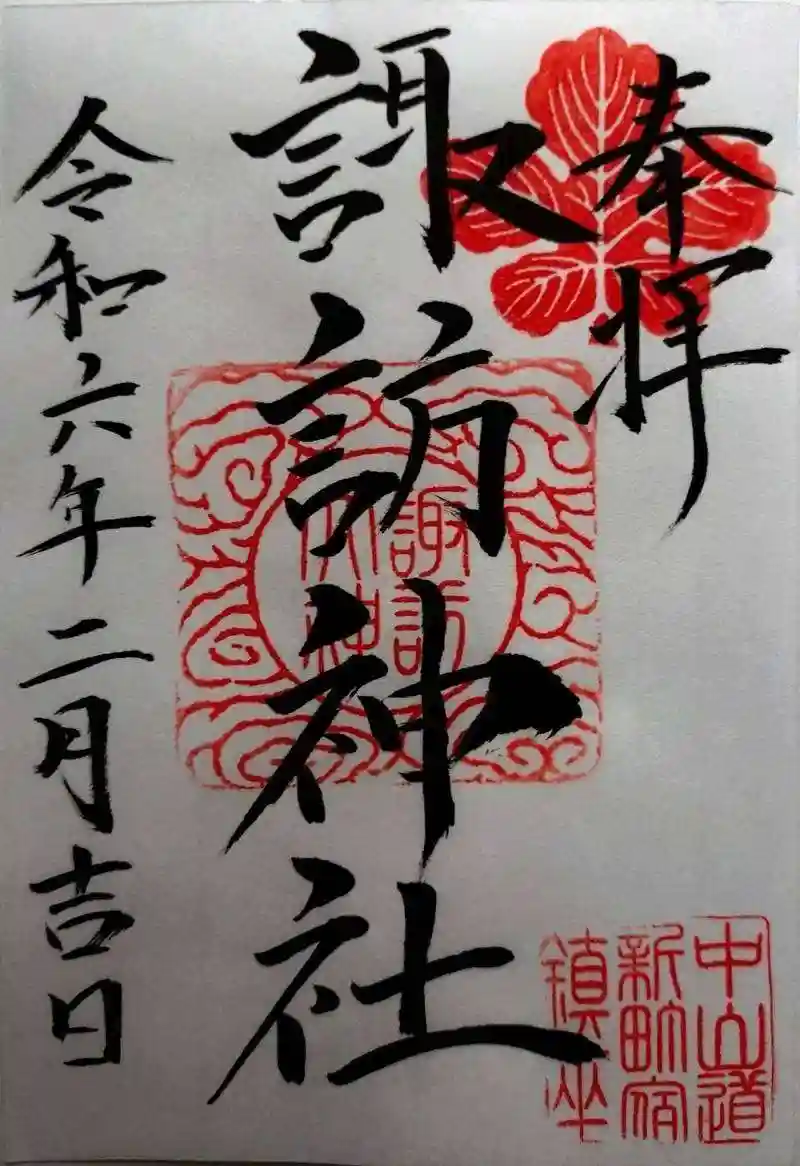 奉拝
諏訪神社
諏訪
大神
令和六年二月吉日
中山道
新町宿
鎮坐